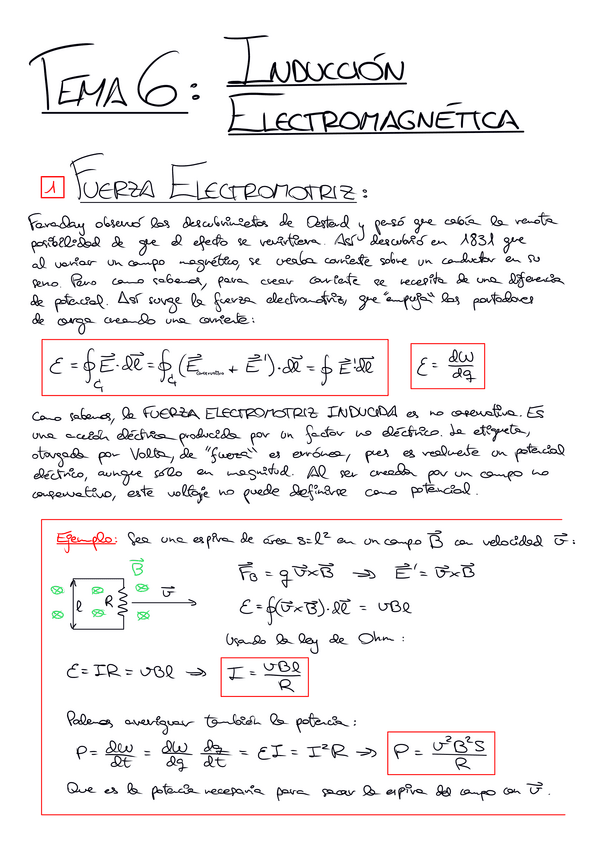 TEMA 6: INDUCCIÓN
ELECTROMAGNÉTICA
1 FUERZA ELECTROMOTRIZ:
Faraday observó los descubrimientos de Oesterd y pensó que cabía la remota
posibilidad de que el efecto se revirtiera. Así descubrió en 1831 que
al variar un campo magnético, se creaba corriente sobre un conductor en su
seno. Pero como sabemos, para crear corriente se necesita de una diferencia
de potencial. Así surge la fuerza electromotriz, que "empuja" los portadores
de carga creando una corriente:
ℰ = ∮_C₁ E⃗·dl⃗ = ∮_C₁ (E⃗_conservativo + E⃗')·dl⃗ = ∮ E⃗'dl⃗ ℰ = dW/dq
Como sabemos, la FUERZA ELECTROMOTRIZ INDUCIDA es no conservativa. ES
una acción eléctrica producida por un factor no eléctrico. La etiqueta,
otorgada por Volta, de "fuerza" es errónea, pues es realmente un potencial
eléctrico, aunque sólo en magnitud. Al ser creada por un campo no
conservativo, este voltaje no puede definirse como potencial.
Ejemplo: Sea una espira de área s=l² en un campo B⃗ con velocidad v⃗:
B⃗
v⃗
l R
F⃗_B = q v⃗×B⃗ ⇒ E⃗' = v⃗×B⃗
ℰ = ∮(v⃗×B⃗)·dl⃗ = vBl
Usando la ley de Ohm:
ℰ = IR = vBl ⇒ I = vBl/R
Podemos averiguar también la potencia:
P = dW/dt = dW/dq dq/dt = ℰI = I²R ⇒ P = v²B²S/R
Que es la potencia necesaria para sacar la espira del campo con v⃗.